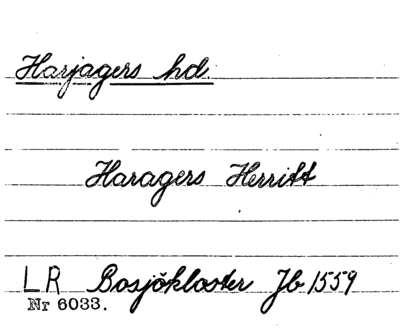 Harjagers hd.
Haragers Herritt
LR Bosjökloster Jb 1559
Nr 6033.